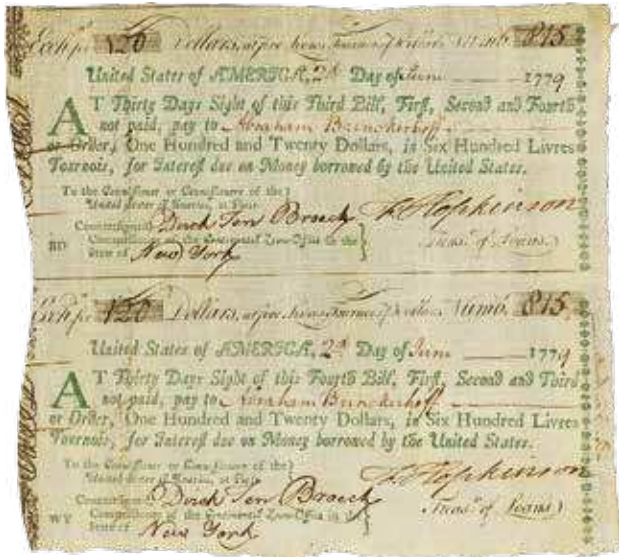 Exch. for 120 Dollars, at five Livres Tournois 815
United States of AMERICA, 2d Day of June 1779
AT Thirty Days Sight of this Third Bill, First, Second and Fourth
not paid, pay to Abraham Brinckerhoff
or Order, One Hundred and Twenty Dollars, in Six Hundred Livres
Tournois, for Interest due on Money borrowed by the United States.
To the Commissioner or Commissioners of the
United States of America, at Paris
Countersigned Derck Ten Broeck F Hopkinson
Commissioner of the Continental Loan-Office in the Treasr. of Loans
RD State of New York
Exch. for 120 Dollars, at five Livres Tournois Numb. 815
United States of AMERICA, 2d Day of June 1779
AT Thirty Days Sight of this Fourth Bill, First, Second and Third
not paid, pay to Abraham Brinckerhoff
or Order, One Hundred and Twenty Dollars, in Six Hundred Livres
Tournois, for Interest due on Money borrowed by the United States.
To the Commissioner or Commissioners of the
United States of America, at Paris
Countersigned Derck Ten Broeck F Hopkinson
Commissioner of the Continental Loan-Office in the Treasr. of Loans
WY State of New York